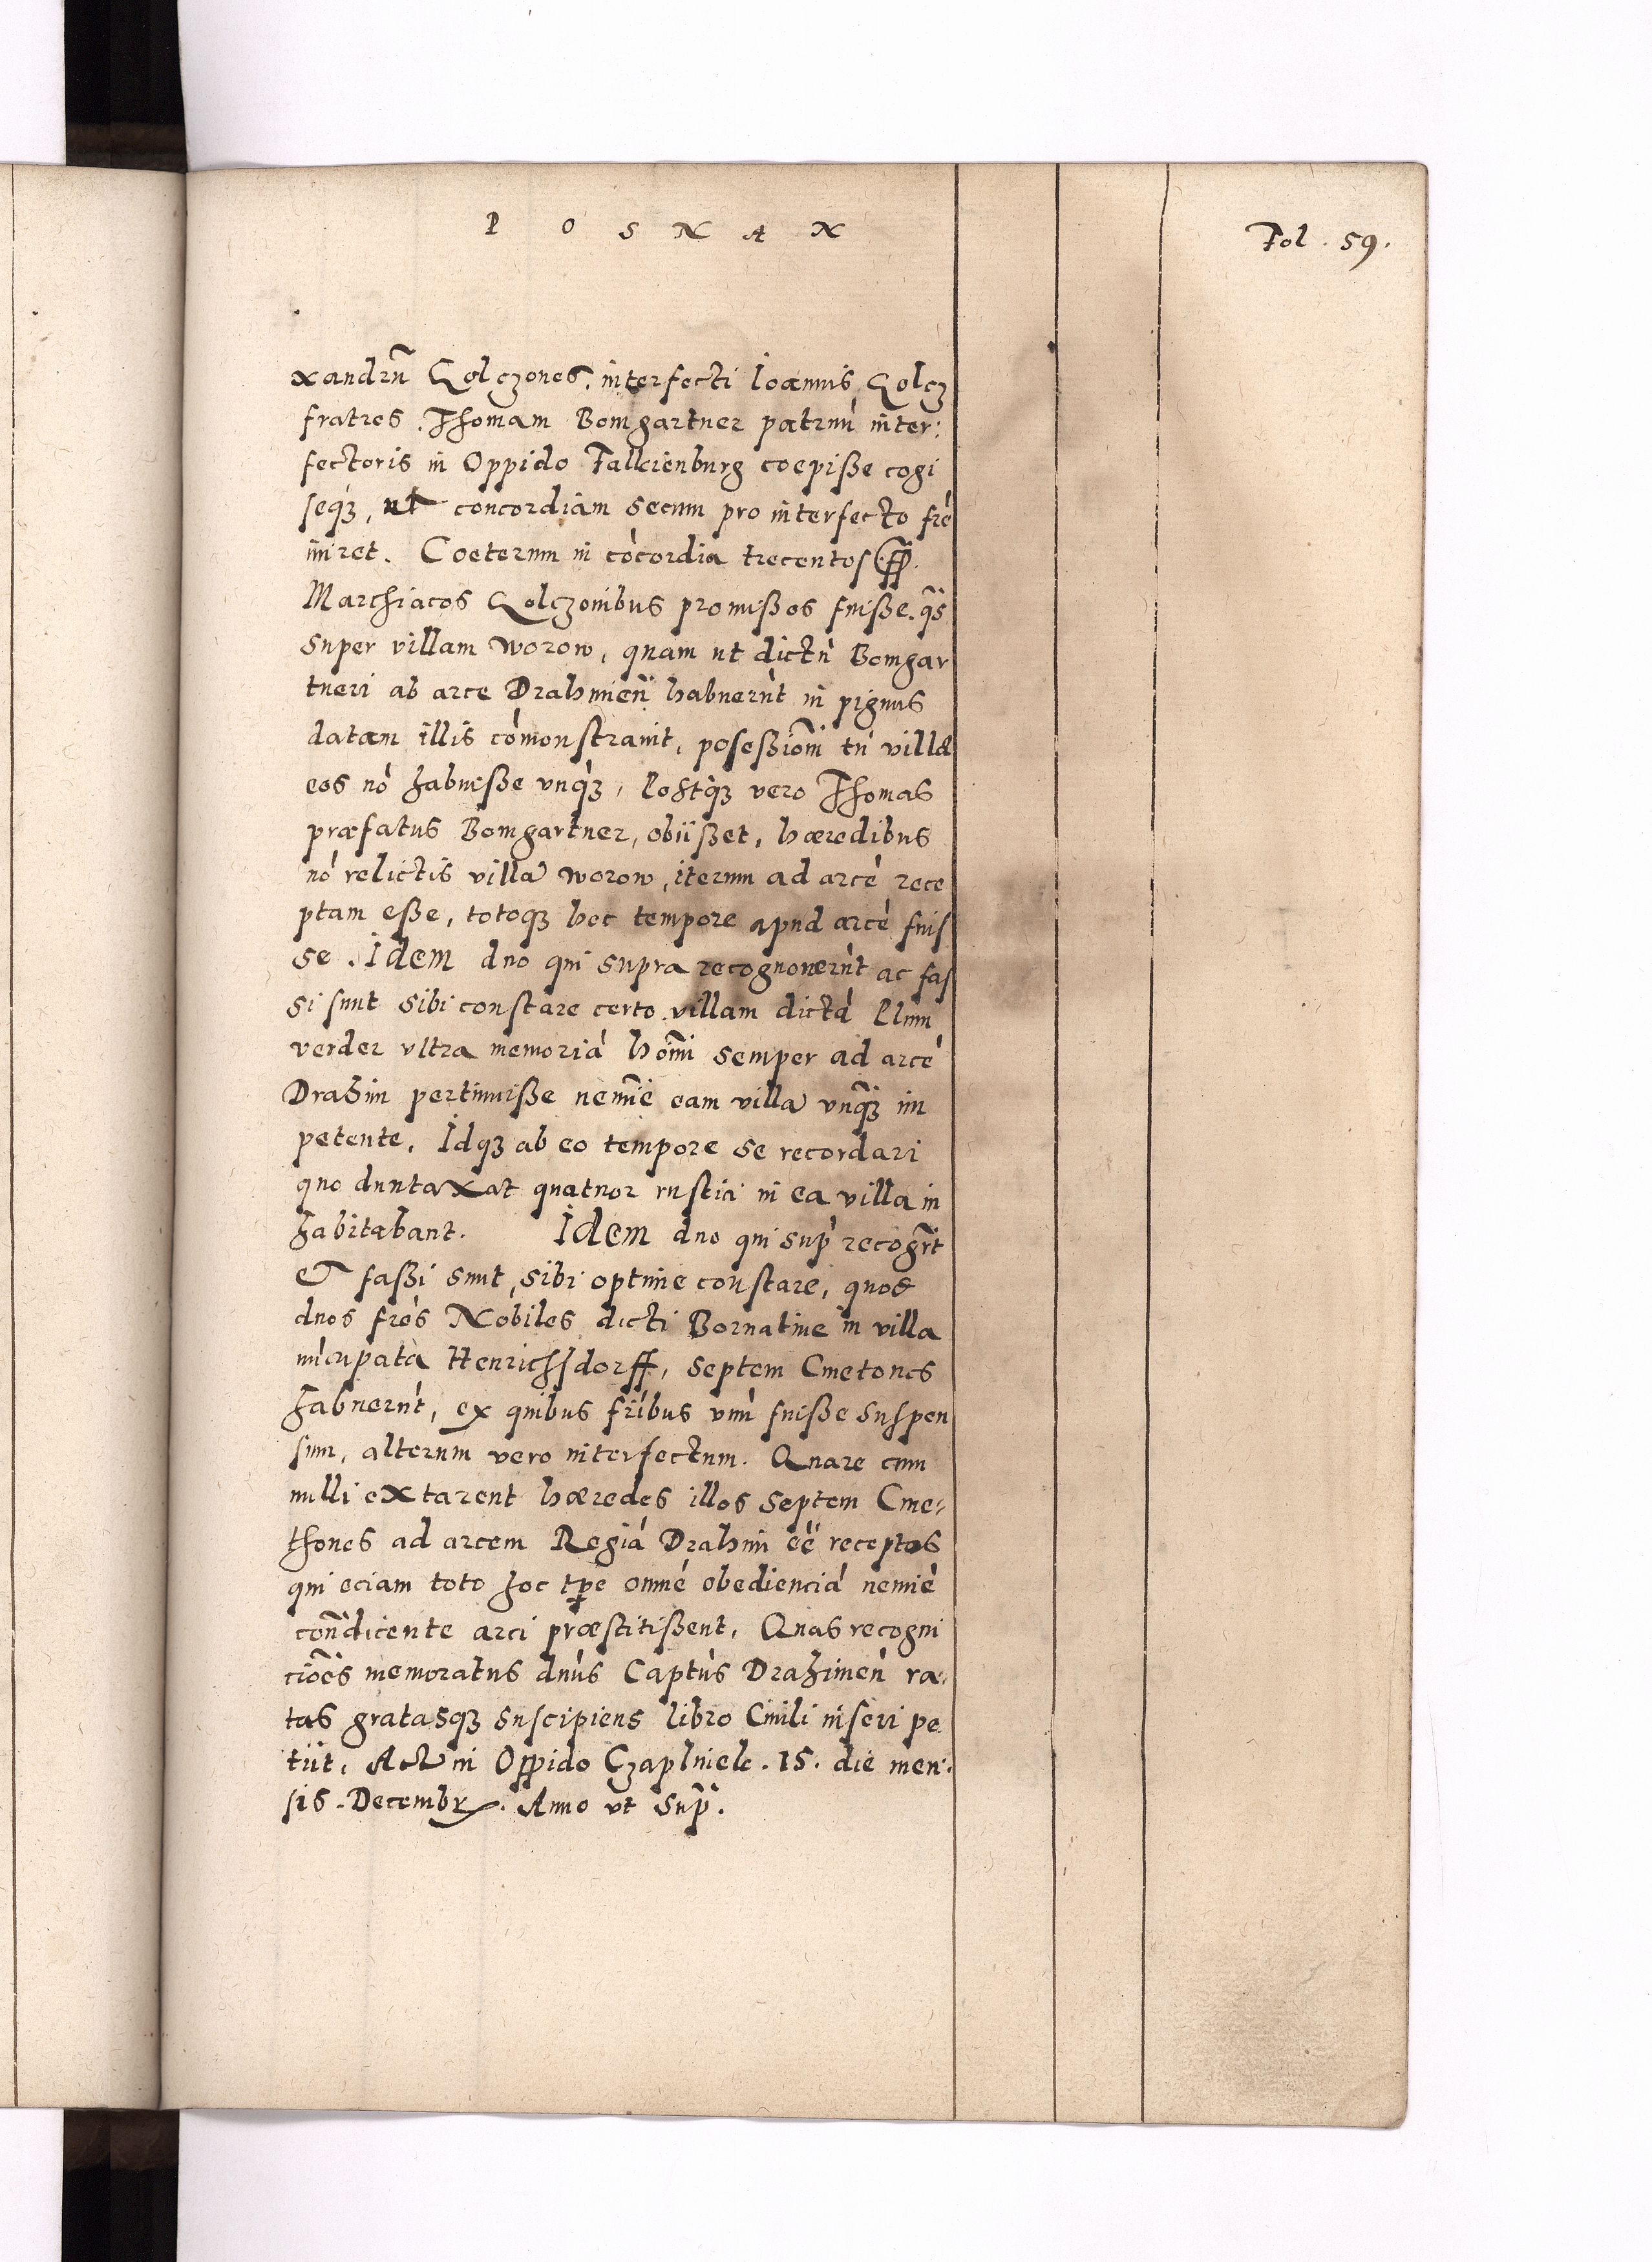 POSNAN
Fol. 59.
xandrũ Golczones, interfecti Joannis Golcz
fratres. Thomam Bomgartner patruũ inter:
fectoris in Oppido Falkienburg coepiße cogi
seqꝫ, ut concordiam secum pro interfecto frẽ
iniret. Coeterum in cõcordia trecentos
Marchiacos Golczonibus promißos fuiße. q̃s
super villam Worow, quam ut dictũ Bomgar
tneri ab arce Drahimieñ habuerũt in pignus
datam illis cõmonstravit, poseßionẽ tñ villæ
eos nõ habuiße vnq̃ꝫ, Postq̃ꝫ vero Thomas
præfatus Bomgartner, obiißet, hæredibus
nõ relictis villã Worow, iterum ad arcẽ rece
ptam eße, totoqꝫ hoc tempore apud arcẽ fuis
se. Idem duo qui supra recognouerũt ac fas
si sunt sibi constare certo villam dictã Plun
verder vltra memoriã homĩ semper ad arcẽ
Drahim pertinuiße neminẽ eam villã vnq̃ꝫ im
petente. Idqꝫ ab eo tempore se recordari
quo duntaxat quatuor rustici in ea villa in
habitabant. Idem duo qui sup̃ recogr̃t
et faßi sunt, sibi optime constare, quod
duos fres̃ Nobiles dicti Bornatine in villa
nũcupatã Henrichsdorff, septem Cmetones
habuerũt, ex quibus fribus̃ vnũ fuiße suspen
sum, alterum vero interfectum. Quare cum
nulli extarent hæredes illos septem Cme-
thones ad arcem Regiã Drahim eẽ receptos
qui eciam toto hoc tꝑe omnẽ obedienciã neminẽ
conᵈdicente arci præstitißent. Quas recogni
cioẽs memoratus dñus Captũs Drahimeñ ra-
tas gratasqꝫ suscipiens libro Ciuili inseri pe
tiit. Actũ in Oppido Czaplniek. 15. die men-
sis. Decembr. Anno vt sup̃.